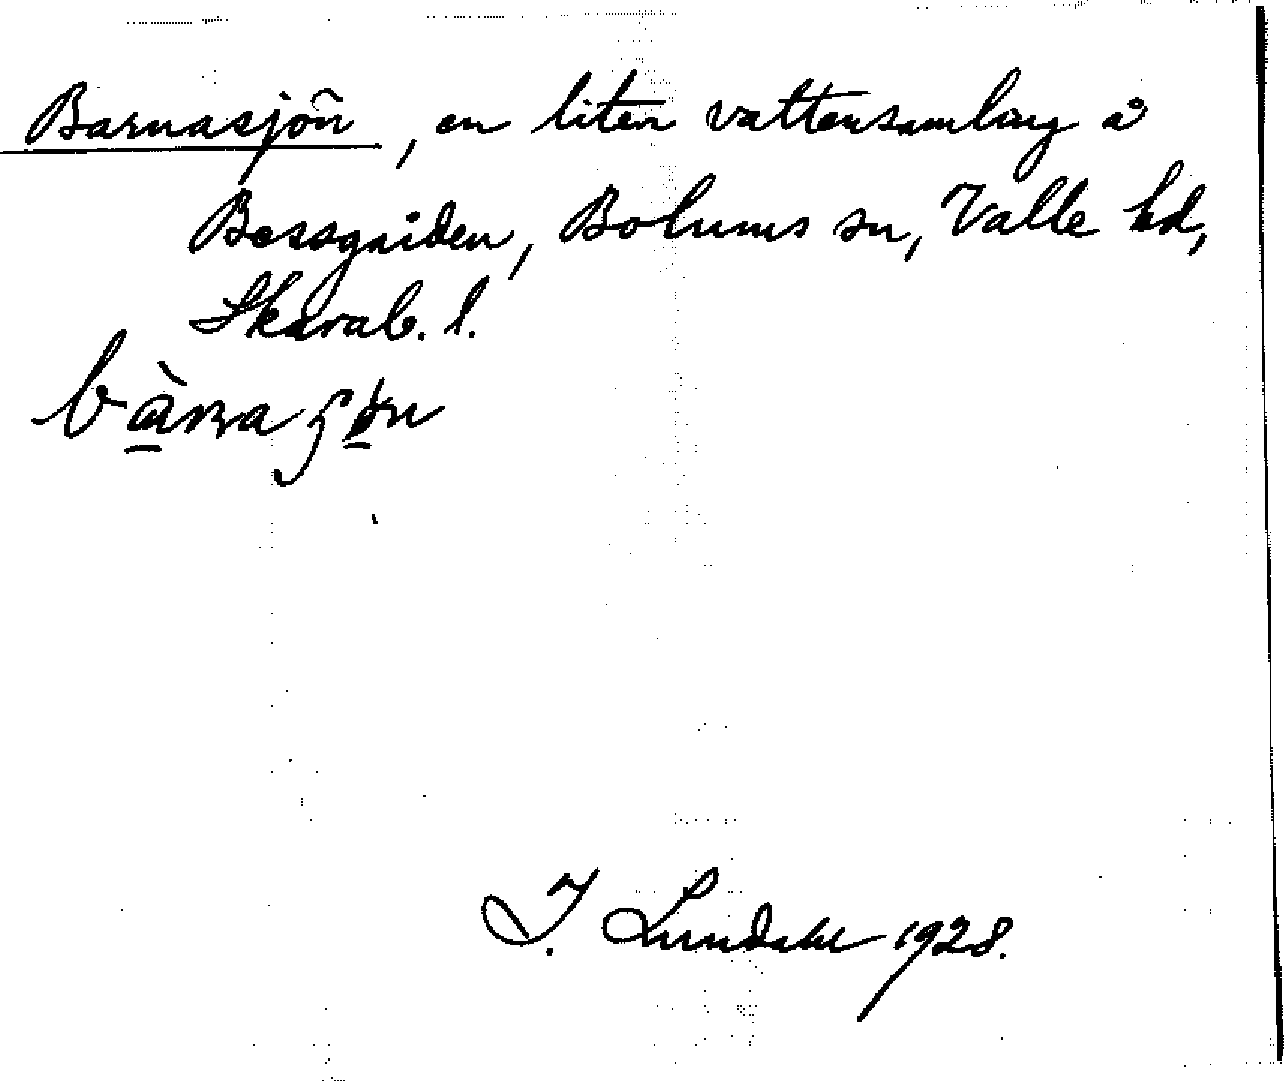 Barnasjön, en liten vattensamling å
Bossgården, Bolums sn, Valle hd,
Skarab. l.
I. Lundahl 1928.